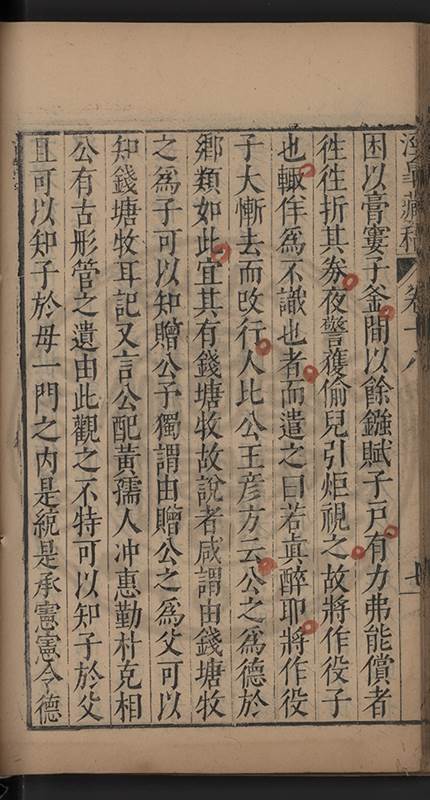 涇臯藏稿 卷十八 七
困以膏窶子釜間以餘鏹賦子戸有力弗能償者
徃徃折其券夜警獲偷兒引炬視之故將作役子
也輙佯爲不識也者而遣之曰若眞醉耶將作役
子大慚去而改行人比公王彦方云公之爲德於
鄉類如此宜其有錢塘牧故說者咸謂由錢塘牧
之爲子可以知贈公予獨謂由贈公之爲父可以
知錢塘牧耳記又言公配黃孺人冲惠勤朴克相
公有古形管之遺由此觀之不特可以知子於父
且可以知子於母一門之內是統是承憲憲令德